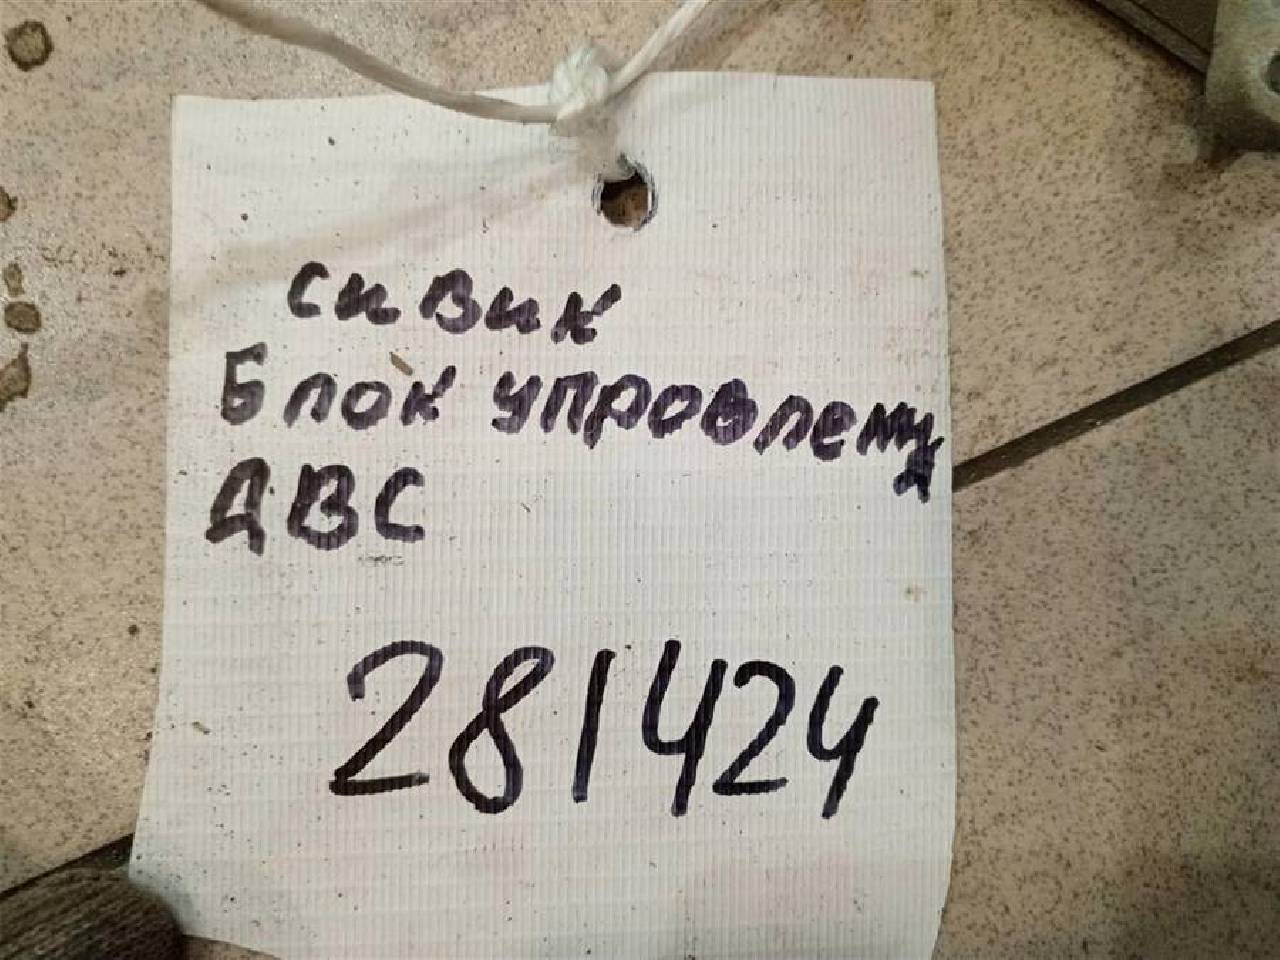 Сивик
Блок упровлени
я
ДВС
281424